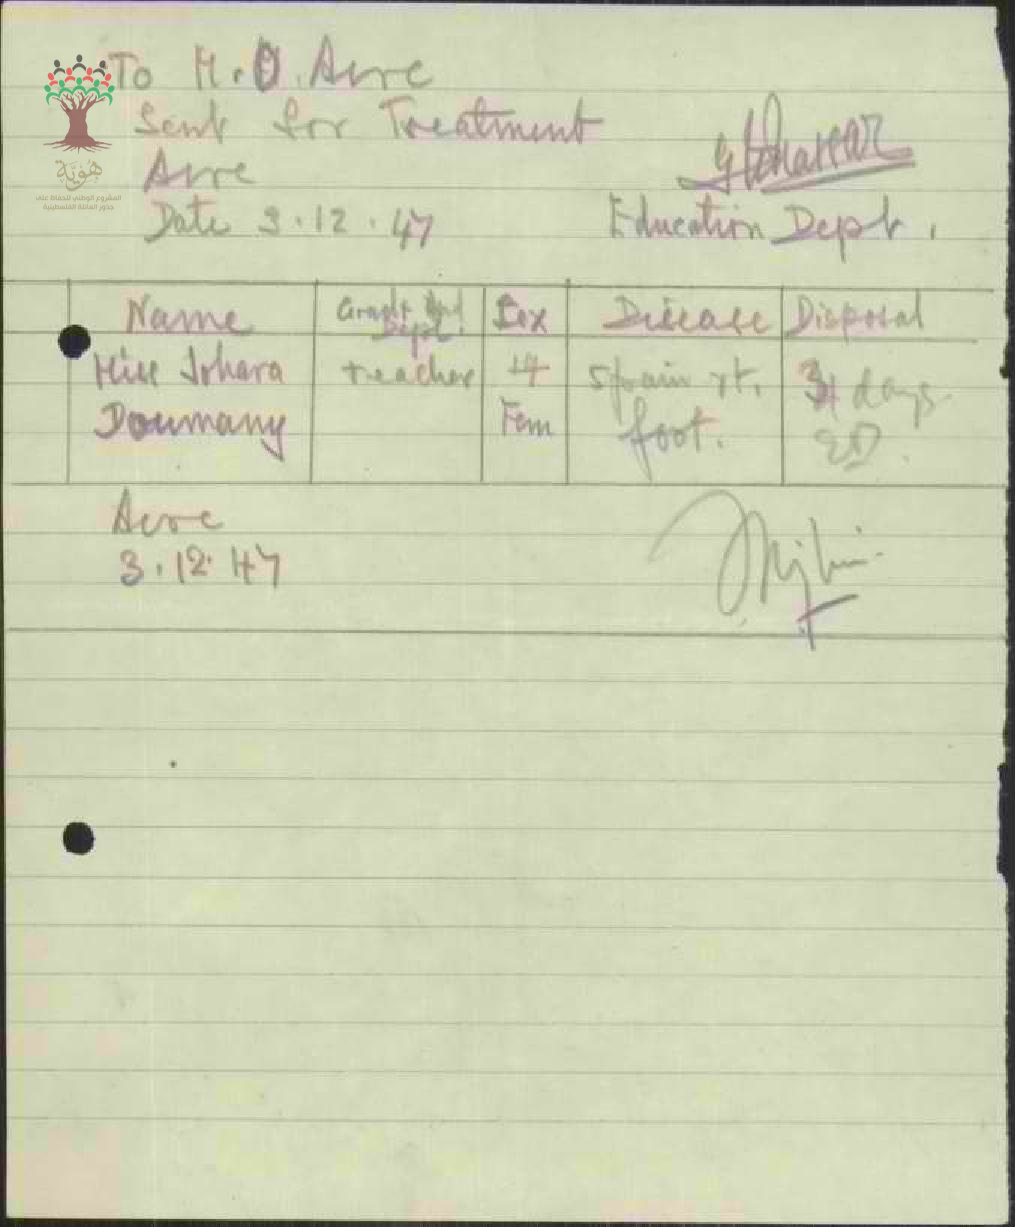 To M.O. Acre
Sent for Treatment
Acre
Date 3.12.47
Education Dept.
هوية
المشروع الوطني للحفاظ على
جذور العائلة الفلسطينية
Name Grade and Dept. Sex Disease Disposal
Miss Johara teacher Sprain rt. days
Doumany Fem foot. ED.
Acre
3.12.47